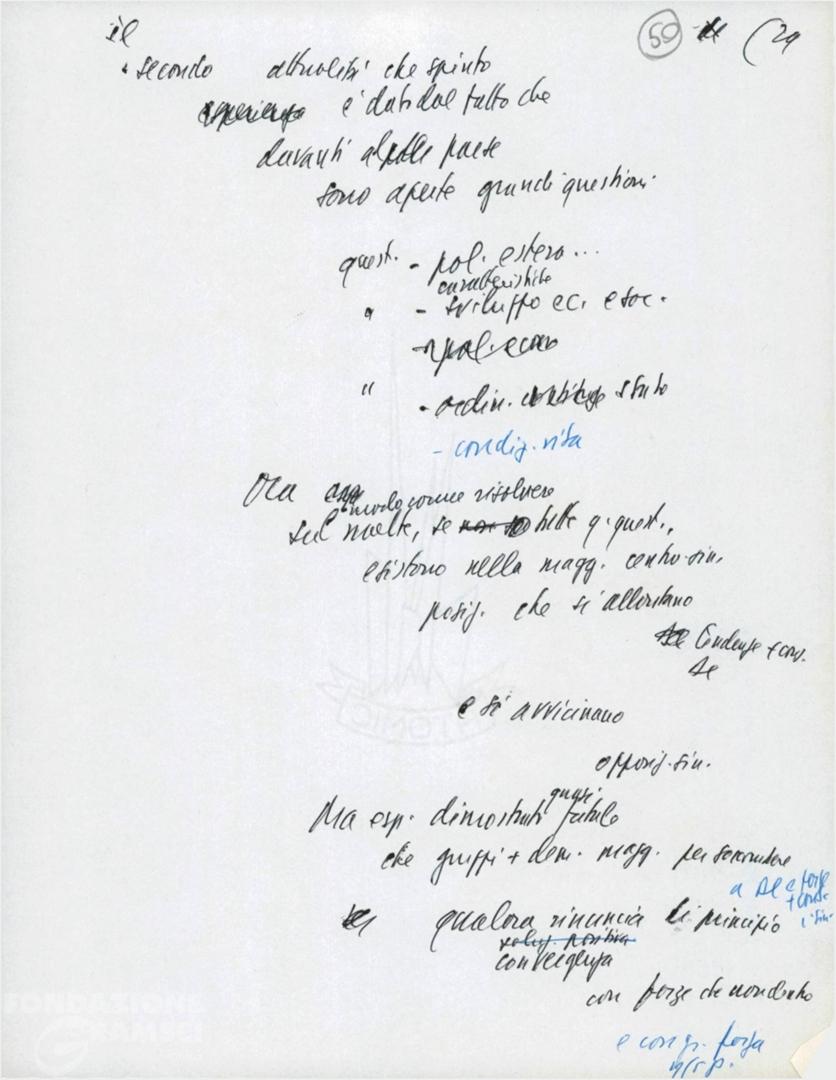 50 (29
il
secondo attualità che spinto
esperienza è dati dal fatto che
davanti al paese
sono aperte grandi questioni.
quest. - pol. estera...
caratteristiche
" - sviluppo ec. e soc.
- pol. econ
" - ordin. stato
- condiz. vita
Ora
modo come risolvere
sul molte, se non so tutte q. quest.,
esistono nella magg. centro-sin.
posiz. che si allontano
tendenze + cons.
De
e si avvicinano
opposiz. sin.
quasi
Ma esp. dimostrati fatale
che gruppi + dem. magg. per soccombere
a De e forze
+ cons.
qualora rinuncia di principio
soluz. positiva
convergenza
con forze che non
e con gr. forza
FONDAZIONE
GRAMSCI